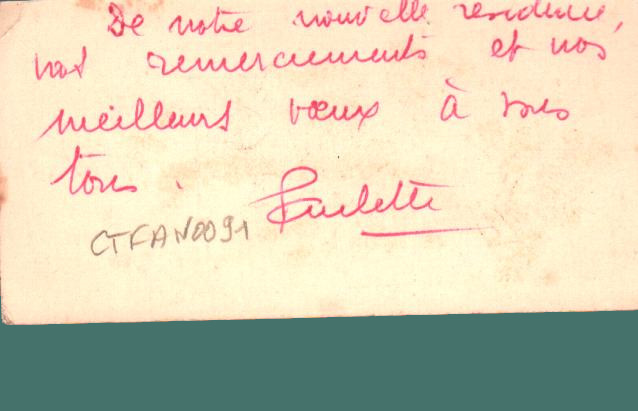 De notre nouvelle résidence,
nos remerciements et nos
meilleurs vœux à vous
tous.
Paulette
CTFAN0091